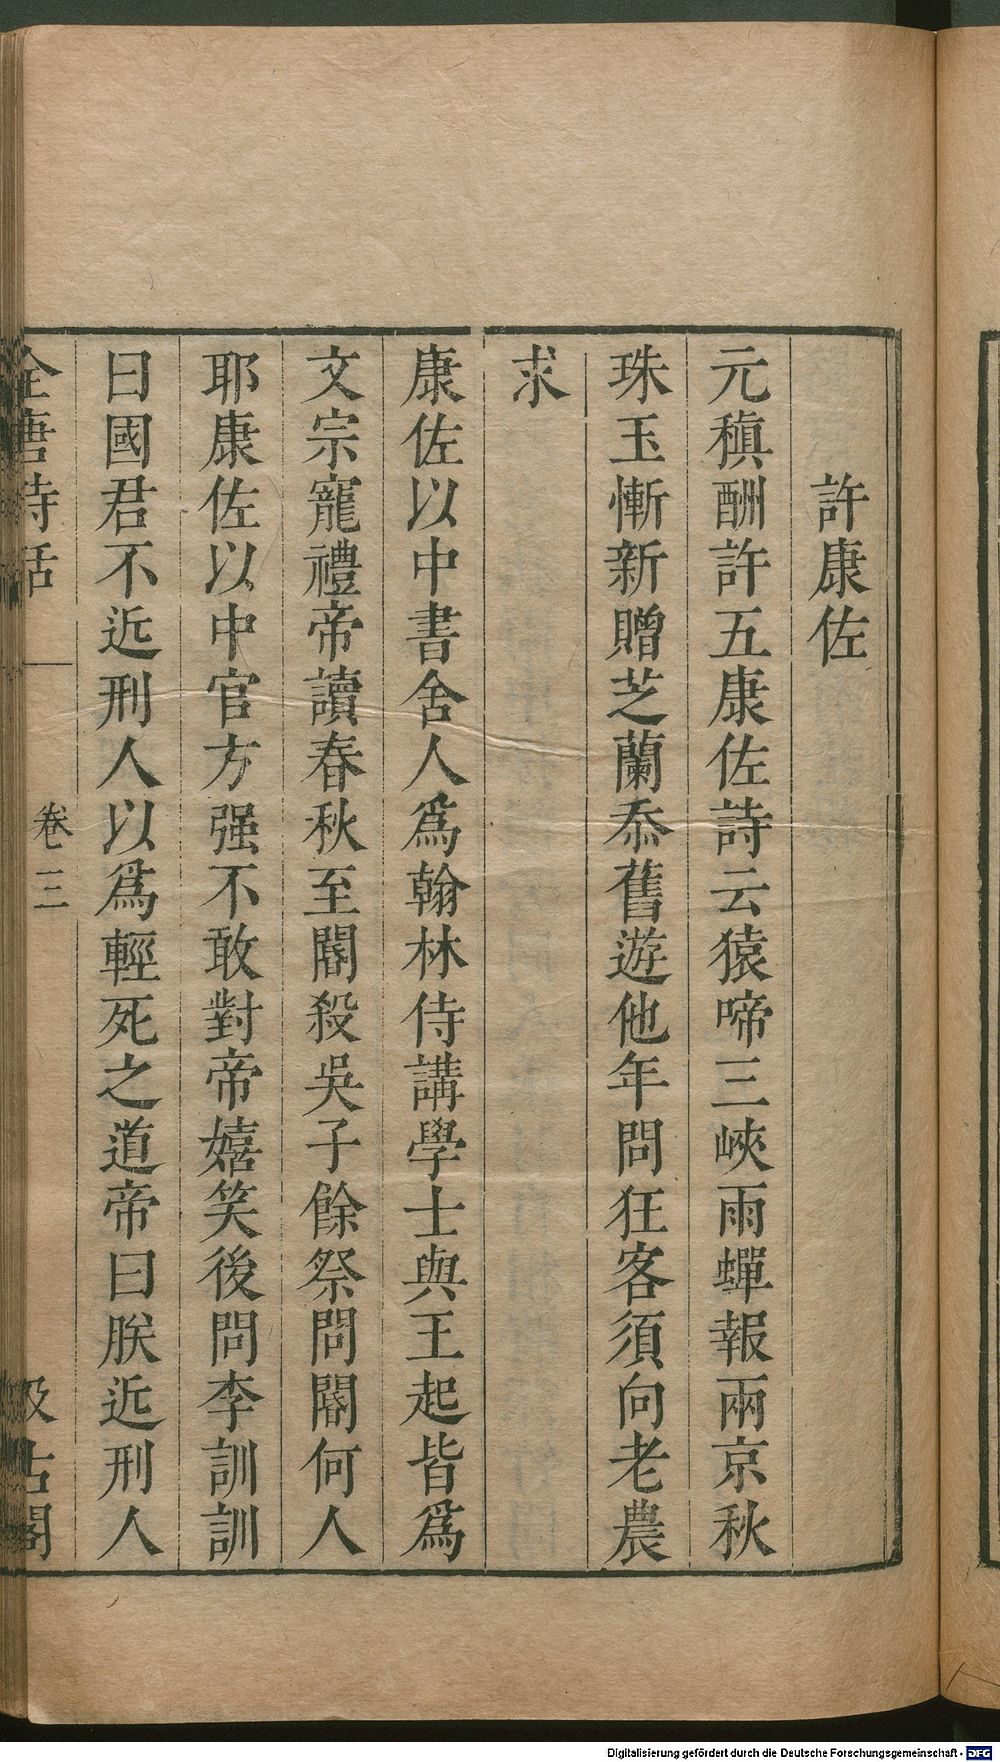 許康佐
元稹酬許五康佐詩云猿啼三峽雨蟬報兩京秋
珠玉慚新贈芝蘭忝舊遊他年問狂客須向老農
求
康佐以中書舍人爲翰林侍講學士與王起皆爲
文宗寵禮帝讀春秋至閽殺吳子餘祭問閽何人
耶康佐以中官方强不敢對帝嬉笑後問李訓訓
曰國君不近刑人以爲輕死之道帝曰朕近刑人
全唐詩話 卷三 汲古閣
Digitalisierung gefördert durch die Deutsche Forschungsgemeinschaft - DFG